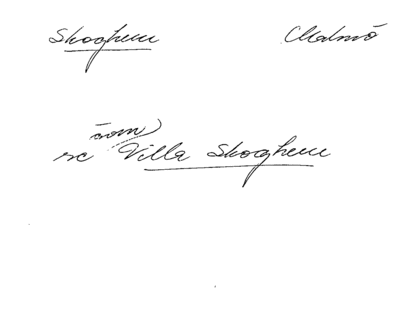 Skoghem Malmö
som
se Villa Skoghem